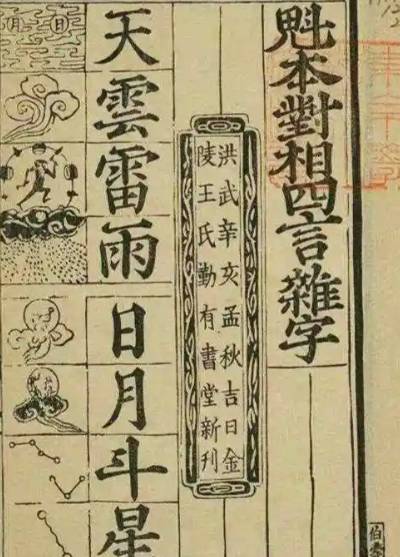 魁本對相四言雜字
洪武辛亥孟秋吉日金
陵王氏勤有書堂新刊
天雲雷雨日月斗星
日
月